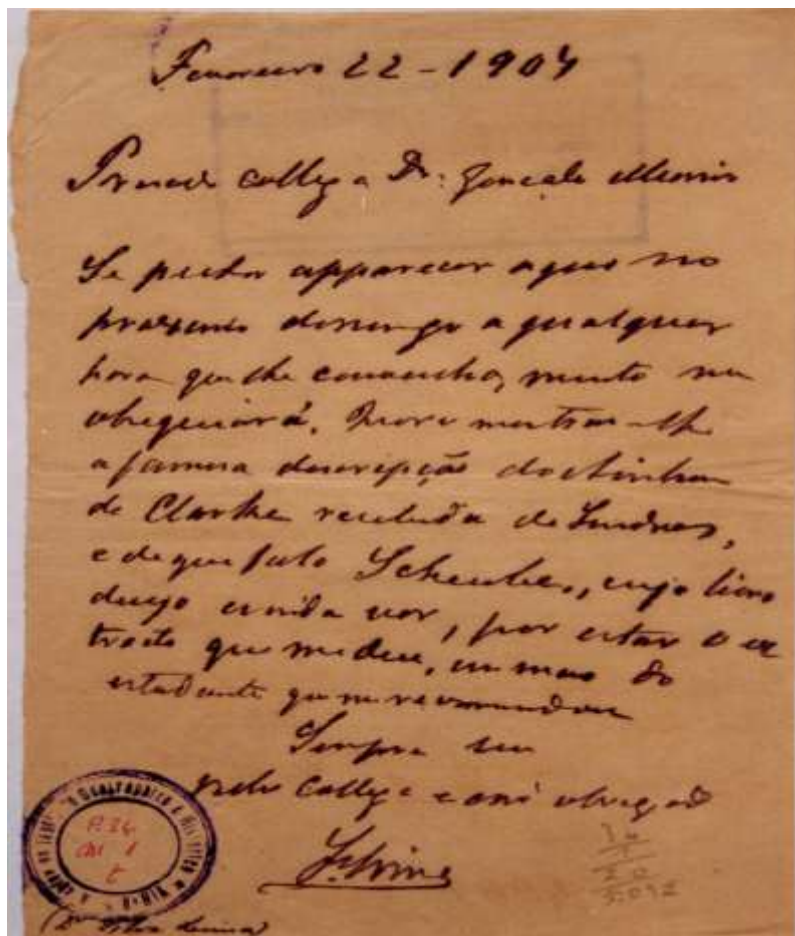 Fevereiro 22 - 1904
Presado collega Dr. Gonçalo Moniz
Se puder apparecer aqui no
proximo domingo a qualquer
hora que lhe convenha, muito me
obsequiará. Quero mostrar-lhe
a famosa descripção do
de Clarke recebida de Londres,
e de que falo Scheube, cujo livro
desejo ainda ver, por estar o ex
tracto que me deu, em mão do
estudante que me recommendou
Sempre seu
velho collega e am.º obrigado
S. Lima